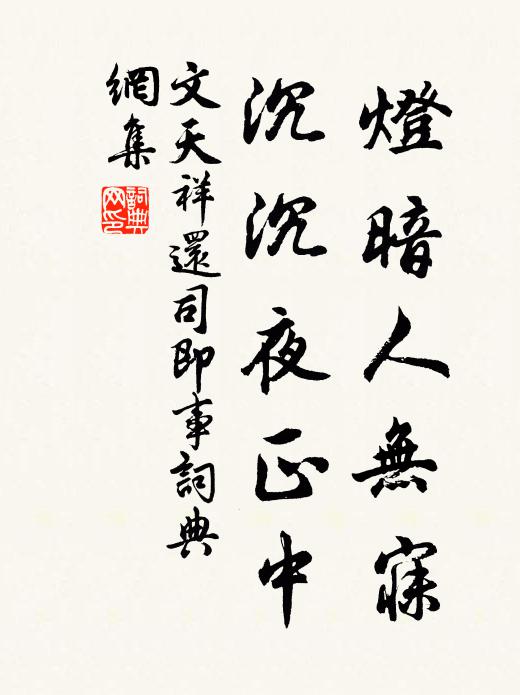 燈暗人無寐
沉沉夜正中
文天祥還司即事詞典
網集
詞典網印